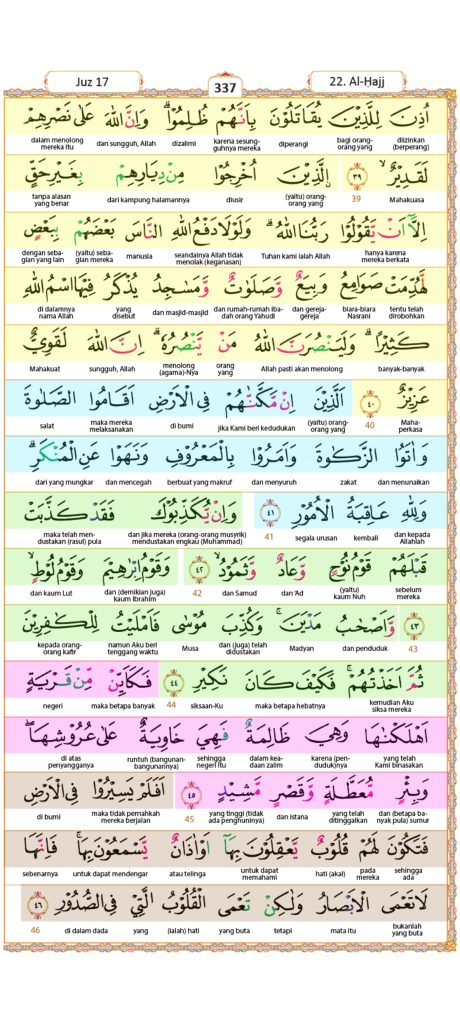 Juz 17
337
22. Al-Ḥajj
اُذِنَ لِلَّذِيْنَ يُقَاتَلُوْنَ بِاَنَّهُمْ ظُلِمُوْاۗ وَاِنَّ اللّٰهَ عَلٰى نَصْرِهِمْ
diizinkan (berperang) bagi orang-orang yang diperangi karena sesung-guhnya mereka dizalimi dan sungguh, Allah dalam menolong mereka itu
لَقَدِيْرٌۙ ٣٩ ۨالَّذِيْنَ اُخْرِجُوْا مِنْ دِيَارِهِمْ بِغَيْرِ حَقٍّ
Mahakuasa 39 (yaitu) orang-orang yang diusir dari kampung halamannya tanpa alasan yang benar
اِلَّآ اَنْ يَّقُوْلُوْا رَبُّنَا اللّٰهُۗ وَلَوْلَا دَفْعُ اللّٰهِ النَّاسَ بَعْضَهُمْ بِبَعْضٍ
hanya karena mereka berkata Tuhan kami ialah Allah seandainya Allah tidak menolak (keganasan) manusia (yaitu) seba-gian mereka dengan seba-gian yang lain
لَّهُدِّمَتْ صَوَامِعُ وَبِيَعٌ وَّصَلَوٰتٌ وَّمَسٰجِدُ يُذْكَرُ فِيْهَا اسْمُ اللّٰهِ
tentu telah dirobohkan biara-biara Nasrani dan gereja-gereja dan rumah-rumah iba-dah orang Yahudi dan masjid-masjid yang disebut di dalamnya nama Allah
كَثِيْرًاۗ وَلَيَنْصُرَنَّ اللّٰهُ مَنْ يَّنْصُرُهٗۗ اِنَّ اللّٰهَ لَقَوِيٌّ
banyak-banyak Allah pasti akan menolong orang yang menolong (agama)-Nya sungguh, Allah Mahakuat
عَزِيْزٌ ٤٠ اَلَّذِيْنَ اِنْ مَّكَّنّٰهُمْ فِى الْاَرْضِ اَقَامُوا الصَّلٰوةَ
Maha-perkasa 40 (yaitu) orang-orang yang Jika Kami beri kedudukan di bumi maka mereka melaksanakan salat
وَاٰتَوُا الزَّكٰوةَ وَاَمَرُوْا بِالْمَعْرُوْفِ وَنَهَوْا عَنِ الْمُنْكَرِۗ
dan menunaikan zakat dan menyuruh berbuat yang makruf dan mencegah dari yang mungkar
وَلِلّٰهِ عَاقِبَةُ الْاُمُوْرِ ٤١ وَاِنْ يُّكَذِّبُوْكَ فَقَدْ كَذَّبَتْ
dan kepada Allahlah kembali segala urusan 41 dan jika mereka (orang-orang musyrik) mendustakan engkau (Muhammad) maka telah men-dustakan (rasul) pula
قَبْلَهُمْ قَوْمُ نُوْحٍ وَّعَادٌ وَّثَمُوْدُۙ ٤٢ وَقَوْمُ اِبْرٰهِيْمَ وَقَوْمُ لُوْطٍۙ
sebelum mereka (yaitu) kaum Nuh dan 'Ad dan Samud 42 dan (demikian juga) kaum Ibrahim dan kaum Lut
٤٣ وَّاَصْحٰبُ مَدْيَنَۚ وَكُذِّبَ مُوْسٰى فَاَمْلَيْتُ لِلْكٰفِرِيْنَ
43 dan penduduk Madyan dan (juga) telah didustakan Musa namun Aku beri tenggang waktu kepada orang-orang kafir
ثُمَّ اَخَذْتُهُمْۚ فَكَيْفَ كَانَ نَكِيْرِ ٤٤ فَكَاَيِّنْ مِّنْ قَرْيَةٍ
kemudian Aku siksa mereka maka betapa hebatnya siksaan-Ku 44 maka betapa banyak negeri
اَهْلَكْنٰهَا وَهِيَ ظَالِمَةٌ فَهِيَ خَاوِيَةٌ عَلٰى عُرُوْشِهَاۖ
yang telah Kami binasakan karena (pen-duduk)nya dalam kea-daan zalim sehingga negeri itu runtuh (bangunan-bangunannya) di atas penyangganya
وَبِئْرٍ مُّعَطَّلَةٍ وَّقَصْرٍ مَّشِيْدٍ ٤٥ اَفَلَمْ يَسِيْرُوْا فِى الْاَرْضِ
dan (betapa ba-nyak pula) sumur yang telah ditinggalkan dan istana yang tinggi (tidak ada penghuninya) 45 maka tidak pernahkah mereka berjalan di bumi
فَتَكُوْنَ لَهُمْ قُلُوْبٌ يَّعْقِلُوْنَ بِهَآ اَوْ اٰذَانٌ يَّسْمَعُوْنَ بِهَاۚ فَاِنَّهَا
sehingga ada pada mereka hati (akal) untuk dapat memahami atau telinga untuk dapat mendengar sebenarnya
لَا تَعْمَى الْاَبْصَارُ وَلٰكِنْ تَعْمَى الْقُلُوْبُ الَّتِيْ فِى الصُّدُوْرِ ٤٦
bukanlah yang buta mata itu tetapi yang buta (ialah) hati yang di dalam dada 46